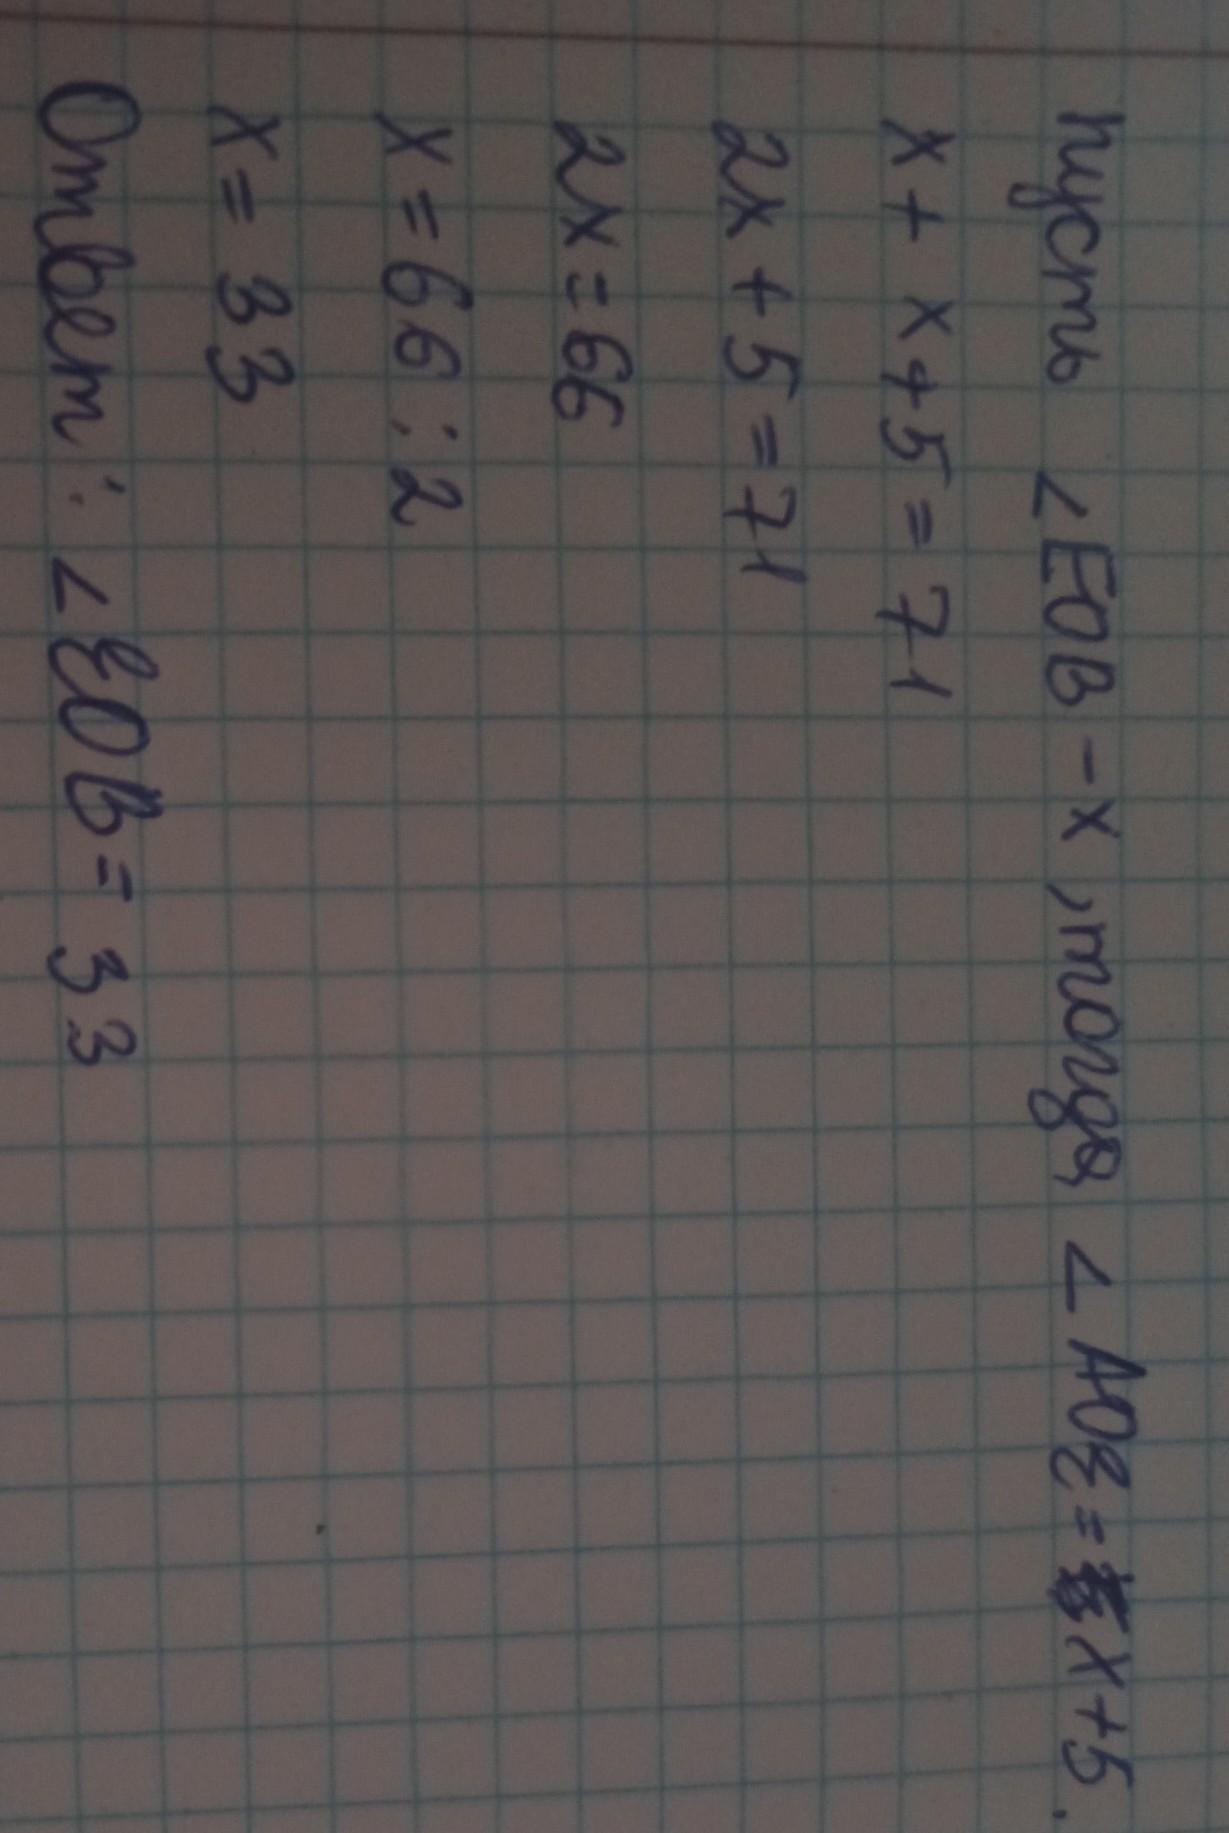 пусть ∠EOB - x, тогда ∠AOE = x+5.
x + x+5 = 71
2x + 5 = 71
2x = 66
x = 66 : 2
x = 33
Ответ: ∠EOB = 33